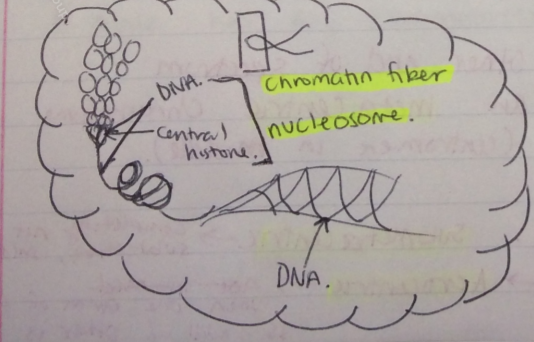 DNA.
chromatin fiber
Central
histone.
nucleosome.
DNA.